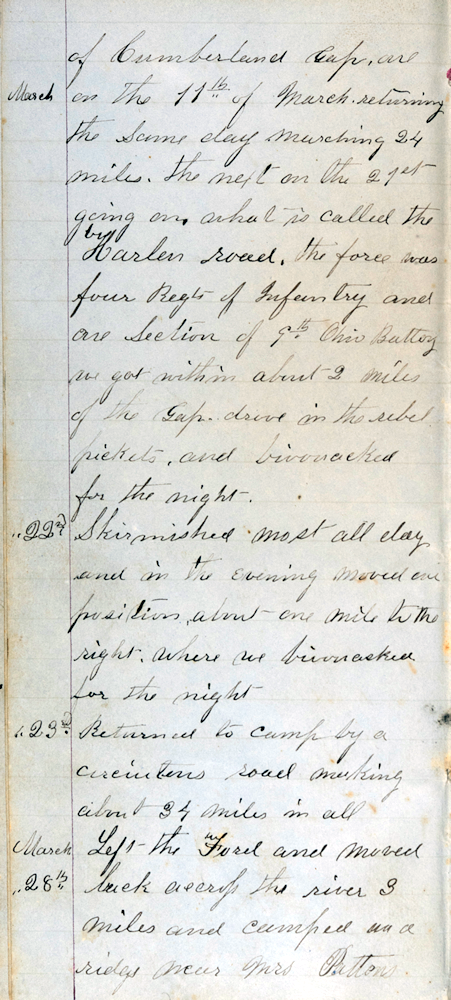 of Cumberland Gap. one
March on the 11th of March. returning
the same day marching 24
miles. the next on the 21st
going on, what is called the
by
Harlen road. the force was
four Regts of Infantry and
one Section of 9th Ohio Battery
we got within about 2 miles
of the Gap. drove in the rebel
pickets, and bivouacked
for the night.
" 22nd Skirmished most all day
and in the evening moved our
position about one mile to the
right. where we bivouacked
for the night
" 23rd Returned to camp by a
circuitous road making
about 34 miles in all
March Left the Ford and moved
" 28th back across the river 3
miles and camped on a
ridge near Mrs Pattons